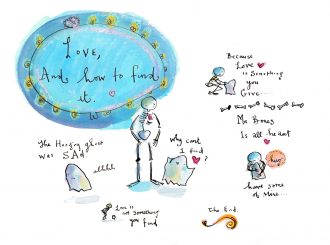 Love,
And how to find
it.
The Hungry ghost
was SAD
Why cant
I find
Love is
not something
you find
Because
Love is
Something
you
Give...
Mr Boney
Is all heart
hug
have some
of mine...
The End.